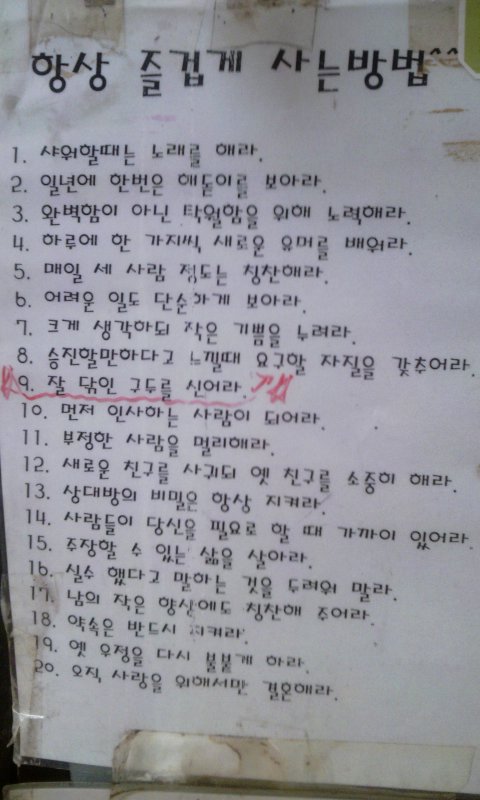 항상 즐겁게 사는방법^^
1. 샤워할때는 노래를 해라.
2. 일년에 한번은 해돋이를 보아라.
3. 완벽함이 아닌 탁월함을 위해 노력해라.
4. 하루에 한 가지씩 새로운 유머를 배워라.
5. 매일 세 사람 정도는 칭찬해라.
6. 어려운 일도 단순하게 보아라.
7. 크게 생각하되 작은 기쁨을 누려라.
8. 승진할만하다고 느낄때 요구할 자질을 갖추어라.
9. 잘 닦인 구두를 신어라.
10. 먼저 인사하는 사람이 되어라.
11. 부정한 사람을 멀리해라.
12. 새로운 친구를 사귀되 옛 친구를 소중히 해라.
13. 상대방의 비밀은 항상 지켜라.
14. 사람들이 당신을 필요로 할 때 가까이 있어라.
15. 주장할 수 있는 삶을 살아라.
16. 실수 했다고 말하는 것을 두려워 말라.
17. 남의 작은 향상에도 칭찬해 주어라.
18. 약속은 반드시 지켜라.
19. 옛 우정을 다시 불붙게 하라.
20. 오직 사랑을 위해서만 결혼해라.